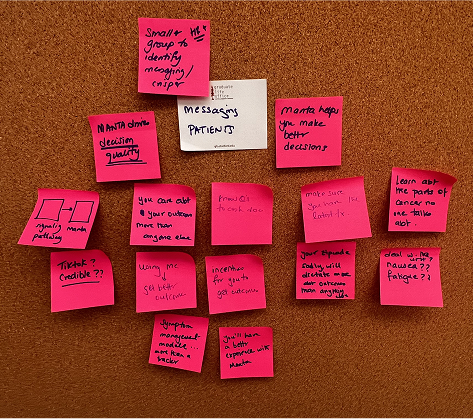 Small
group to
identify
messaging/
HF
graduate
life
office
MESSAGING
PATIENTS
MANTA drives
decision
quality
Manta helps
you make
bettr
decisions
signaling manta
pathway
you care abt
& your outcome
more than
anyone else
Prov Qs
to ask doc
make sure
you have the
latest tx.
Learn abt
the parts of
cancer no
one talks
abt.
Tiktok?
Credible??
Using me
↓
get bettr
outcome
incentive
for you to
get outcome
your
will
dictate more
our outcome
than anything
else
deal w. the
nausea??
fatigue??
Symptom
management
module...
more than a
tracker
you'll have
a better
experience with
Manta